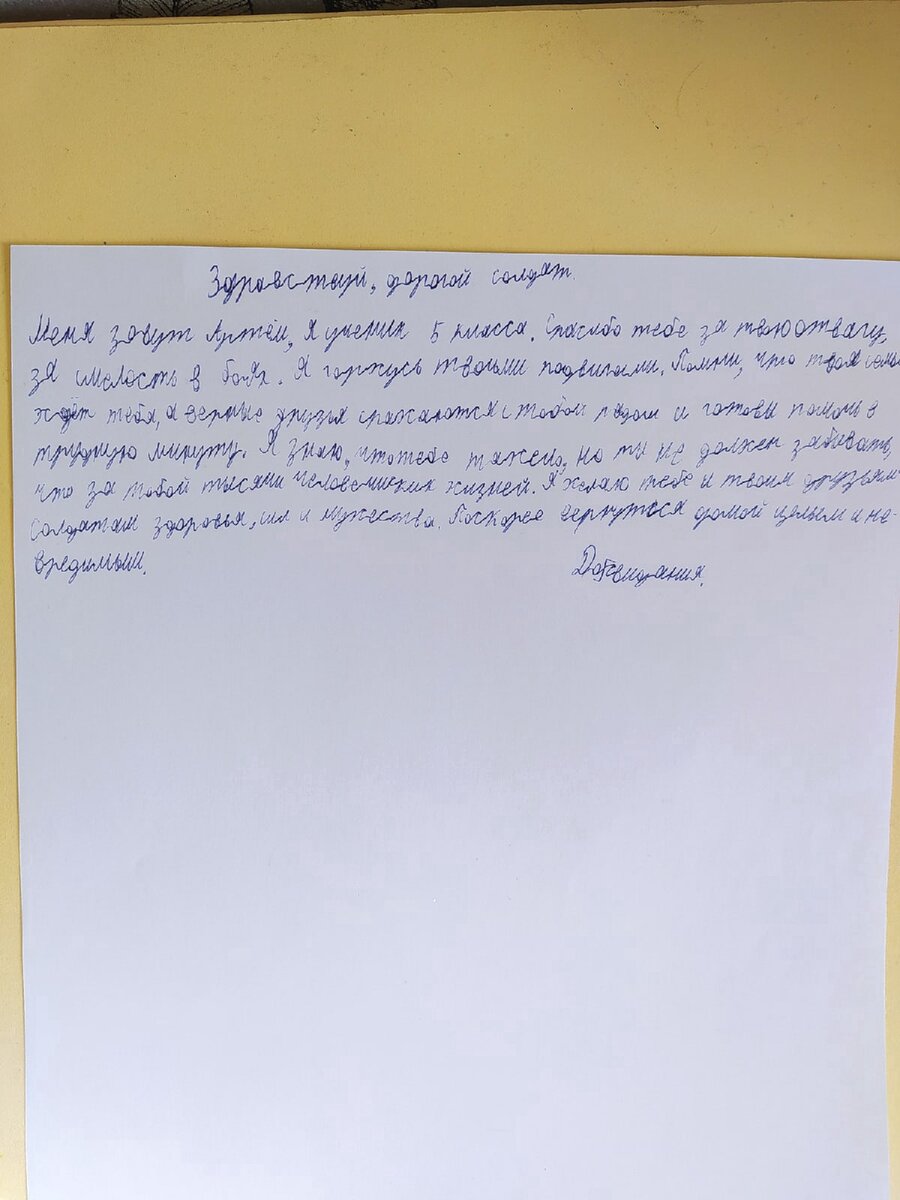 Здравстуй, дорогой солдат.
Меня зовут Артём, я ученик 5 класса. Спасибо тебе за твою отвагу,
за смелость в боях. Я горжусь твоими подвигами. Помни, что твоя семья
ждёт тебя, а верные друзья сражаются с тобой рядом и готовы помочь в
трудную минуту. Я знаю, что тебе тяжело, но ты не должен забывать,
что за тобой тысячи человеческих жизней. Я желаю тебе и твоим друзьям
солдатам здоровья, сил и мужества. Поскорее вернуться домой целым и не-
вредимым.
Досвидания.